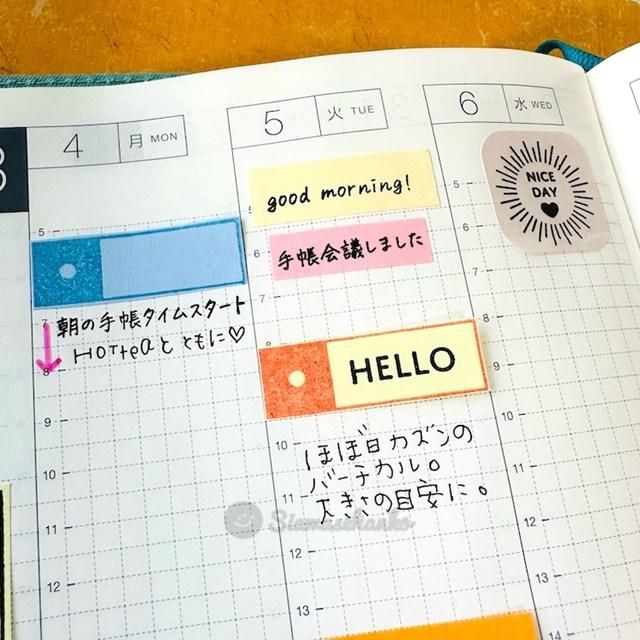 4 月 MON
5 火 TUE
6 水 WED
5
6
7
8
9
10
11
12
13
14
8
9
10
11
12
朝の手帳タイムスタート
HOTteaとともに♡
good morning!
手帳会議しました
HELLO
ほぼ日カズンの
バーチカル。
大きさの目安に。
NICE
DAY
Siawasehanko